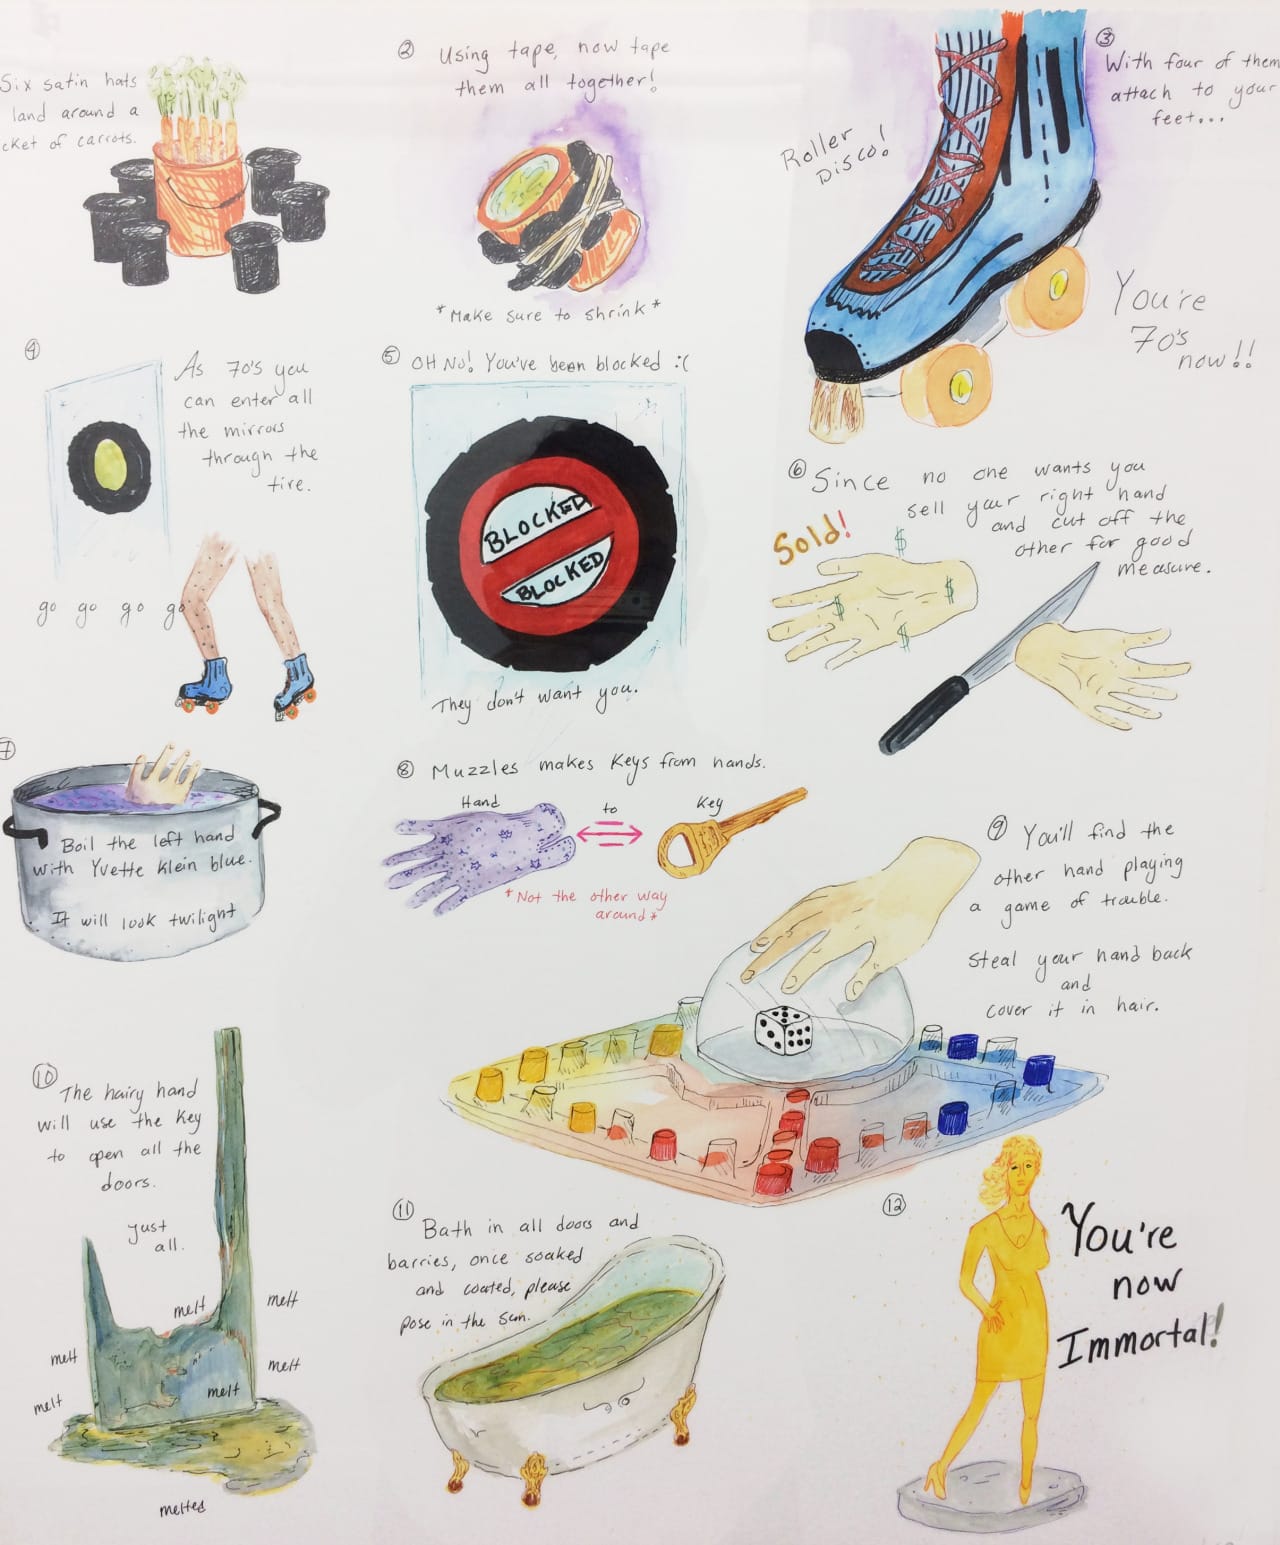 Six satin hats
land around a
cket of carrots.
②
Using tape, now tape
them all together!
*Make sure to shrink*
③
With four of them
attach to your
feet...
Roller
Disco!
You're
70's
now!!
④
As 70's you
can enter all
the mirrors
through the
tire.
go go go go
⑤ OH NO! You've been blocked :(
BLOCKED
BLOCKED
They don't want you.
⑥ Since no one wants you
sell your right hand
and cut off the
other for good
measure.
Sold!
$
$
$
$
7
Boil the left hand
with Yvette Klein blue.
It will look twilight
⑧ Muzzles makes Keys from hands.
Hand to Key
*Not the other way
around*
⑨ You'll find the
other hand playing
a game of trouble.
Steal your hand back
and
cover it in hair.
⑩ The hairy hand
will use the key
to open all the
doors.
Just
all.
melt
melt
melt
melt
melt
melt
melted
⑪ Bath in all doors and
barries, once soaked
and coated, please
pose in the sun.
⑫
You're
now
Immortal!